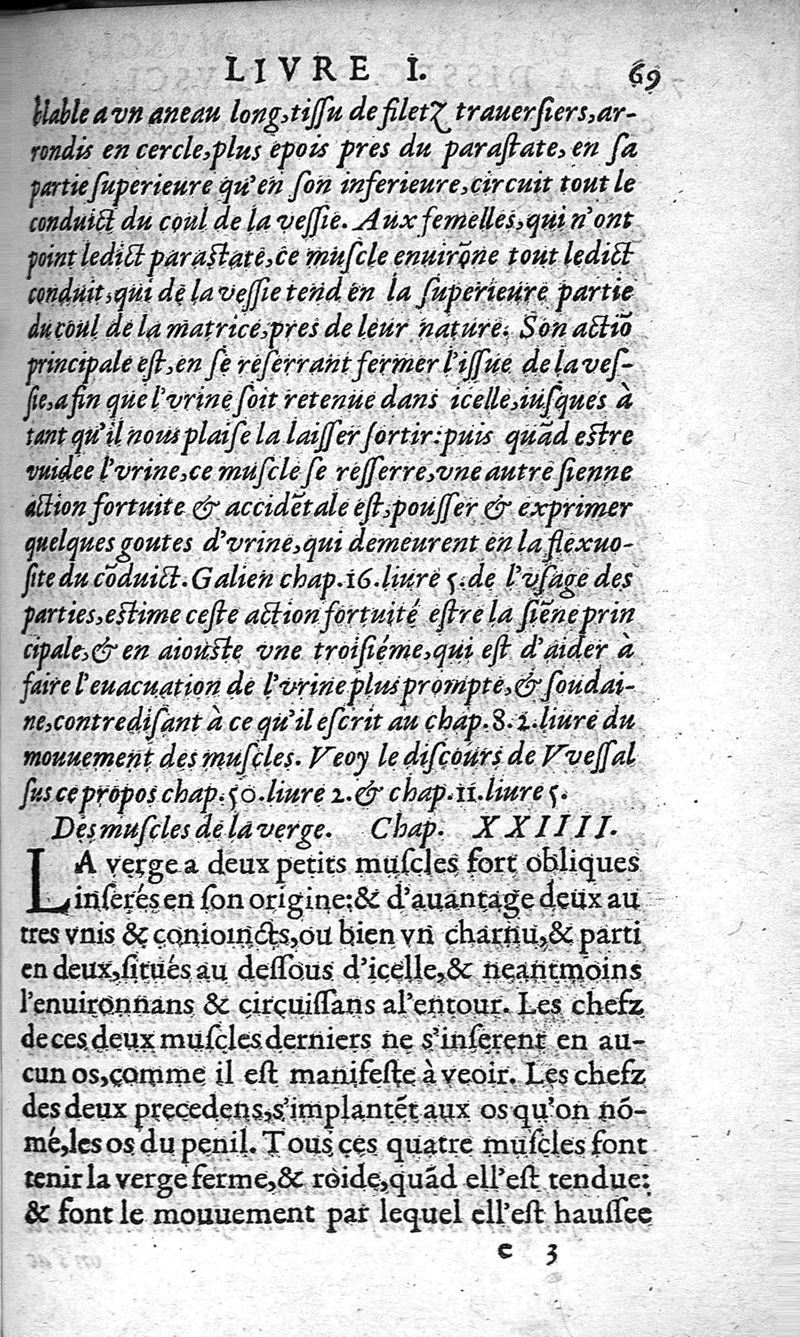 LIVRE I. 69
blable a vn aneau long, tiſſu de filetz trauerſiers, ar-
rondis en cercle, plus epois pres du paraſtate, en ſa
partie ſuperieure qu'en ſon inferieure, circuit tout le
conduict du coul de la veſſie. Aux femelles, qui n'ont
point ledict paraſtate, ce muſcle enuirōne tout ledict
conduit, qui de la veſſie tend en la ſuperieure partie
du coul de la matrice, pres de leur nature. Son actiō
principale eſt, en ſe reſerrant fermer l'iſſue de la veſ-
ſie, afin que l'vrine ſoit retenue dans icelle, iuſques à
tant qu'il nous plaiſe la laiſſer ſortir: puis quād eſtre
vuidee l'vrine, ce muſcle ſe reſſerre, vne autre ſienne
action fortuite & accidētale eſt, pouſſer & exprimer
quelques goutes d'vrine, qui demeurent en la flexuo-
ſite du cōduict. Galien chap. 16. liure 5. de l'vſage des
parties, eſtime ceſte action fortuité eſtre la ſiēne prin
cipale, & en aiouſte vne troiſiéme, qui eſt d'aider à
faire l'euacuation de l'vrine plus prompte, & ſoudai-
ne, contrediſant à ce qu'il eſcrit au chap. 8. 2. liure du
mouuement des muſcles. Veoy le diſcours de Vveſſal
ſus ce propos chap. 50. liure 2. & chap. 11. liure 5.
Des muſcles de la verge. Chap. XXIIII.
LA verge a deux petits muſcles fort obliques
inſerés en ſon origine: & d'auantage deux au
tres vnis & conioincts, ou bien vn charnu, & parti
en deux, ſitués au deſſous d'icelle, & neantmoins
l'enuironnans & circuiſſans al'entour. Les chefz
de ces deux muſcles derniers ne s'inſerent en au-
cun os, comme il eſt manifeſte à veoir. Les chefz
des deux precedens, s'implantēt aux os qu'on nō-
mé, les os du penil. Tous ces quatre muſcles font
tenir la verge ferme, & roide, quād ell'eſt tendue:
& font le mouuement par lequel ell'eſt hauſſee
e 3